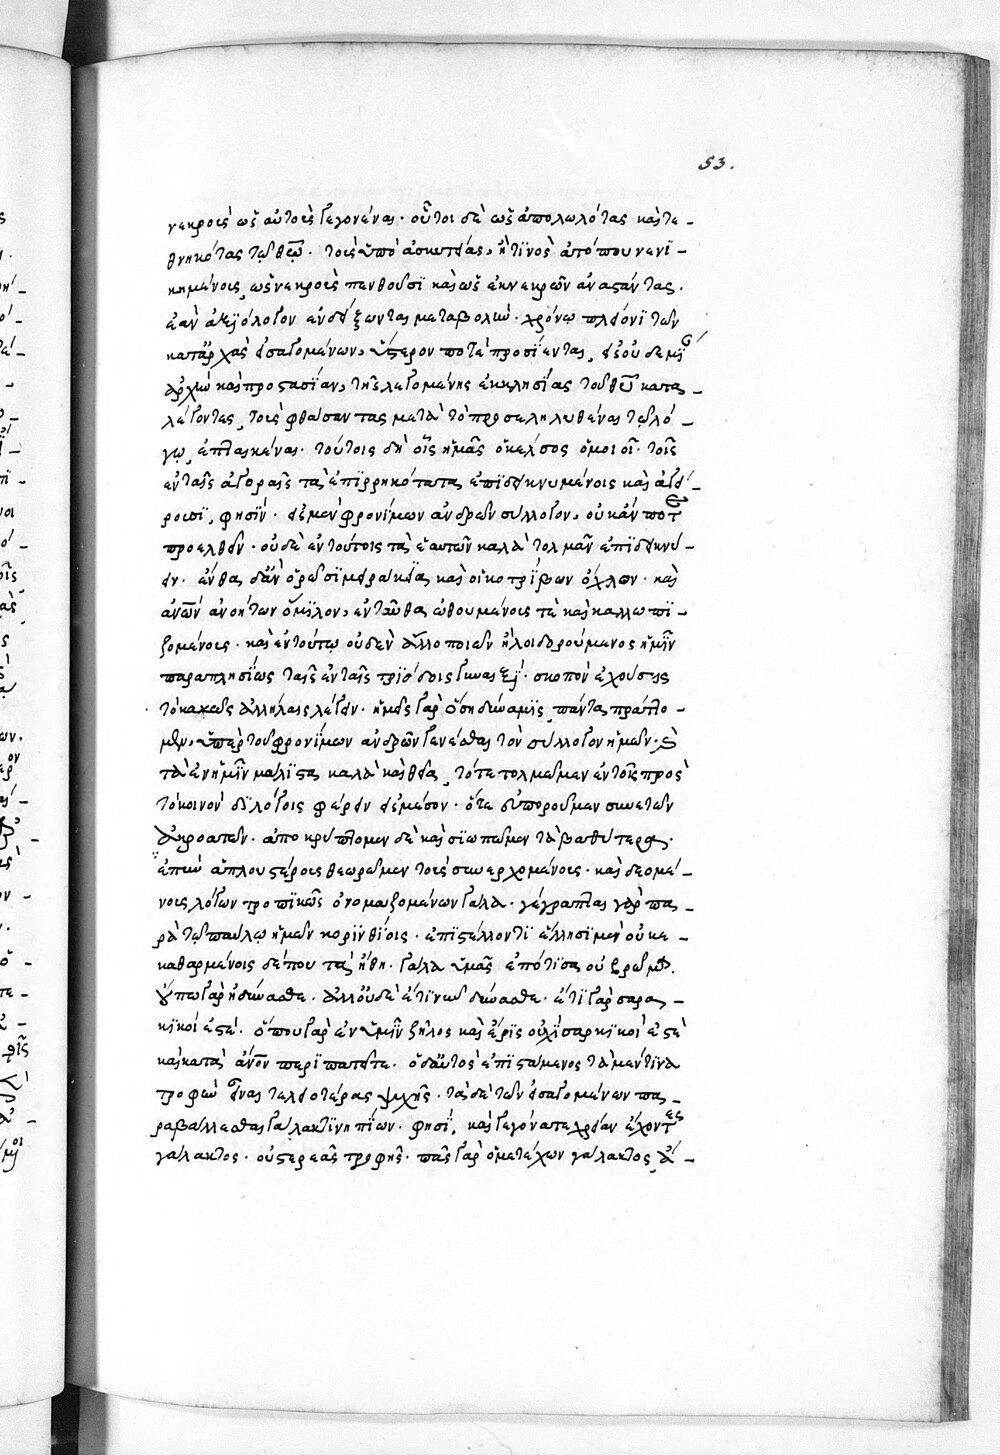 53.
νεκροὺς ὡς αὐτοῖς γεγονέναι· οὗτοι δὲ ὡς ἀπολωλότας καὶ τε-
θνηκότας τῷ θεῷ· τοὺς ὑπὸ ἀσελγείας, ἤ τινος ἀτόπου νενι-
κημένους, ὡς νεκροὺς πενθοῦσι καὶ ὡς ἐκ νεκρῶν ἀναστάντας.
ἐὰν ἀξιόλογον ἐνδείξωνται μεταβολὴν· χρόνῳ πλείονι τῶν
κατ' ἀρχὰς εἰσαγομένων, ὕστερον ποτὲ προσίενται, εἰς οὐδεμίαν
ἀρχὴν καὶ προστασίαν, τῆς λεγομένης ἐκκλησίας τοῦ θεοῦ κατα-
λέγοντες, τοὺς φθάσαντας μετὰ τὸ προσεληλυθέναι τῷ λό-
γῳ, ἐπταικέναι. τούτοις δὴ οἷς ἡμᾶς ὁ κέλσος ὁμοιοῖ· τοῖς
ἐν ταῖς ἀγοραῖς τὰ ἐπιρρητότατα ἐπιδεικνυμένοις καὶ ἀγεί-
ρουσι, φησὶν· εἰς μὲν φρονίμων ἀνδρῶν σύλλογον, οὐκ ἄν ποτε
προελθεῖν· οὐδὲ ἐν τούτοις τὰ ἑαυτῶν καλὰ τολμᾶν ἐπιδεικνύ-
ειν· ἔνθα δ' ἂν ὁρῶσι μειράκια, καὶ οἰκοτρίβων ὄχλον· καὶ
ἀνων ἀνοήτων ὅμιλον, ἐνταῦθα ὠθουμένοις τὲ καὶ καλλωπι-
ζομένοις. καὶ ἐν τούτῳ οὐδὲν ἄλλο ποιῶν ἢ λοιδορούμενος ἡμῖν
παραπλησίως ταῖς ἐν ταῖς τριόδοις γυναιξὶ· σκοπὸν ἐχούσαις
τὸ κακῶς ἀλλήλας λέγειν. ἡμεῖς γὰρ ὅση δύναμις, πάντα πράττο-
μεν, ὑπὲρ τοῦ φρονίμων ἀνδρῶν γενέσθαι τὸν σύλλογον ἡμῶν· καὶ
τὰ ἐν ἡμῖν μάλιστα καλὰ καὶ θεῖα, τότε τολμῶμεν ἐν τοῖς πρὸς
τὸ κοινὸν διαλόγοις φέρειν εἰς μέσον· ὅτε εὐποροῦμεν συνετῶν
ἀκροατῶν. ἀποκρύπτομεν δὲ καὶ σιωπῶμεν τὰ βαθύτερα.
ἐπὴν ἁπλουστέρους θεωρῶμεν τοὺς συνερχομένους· καὶ δεομέ-
νους λόγων τροπικῶς ὀνομαζομένων γάλα· γέγραπται γὰρ πα-
ρὰ τῷ παύλῳ ἡμῶν κορινθίοις· ἐπιστέλλοντι ἕλλησι μὲν οὐ κε-
καθαρμένοις δέ που τὰ ἤθη· γάλα ὑμᾶς ἐπότισα οὐ βρῶμα.
οὔπω γὰρ ἠδύνασθε. ἀλλ' οὐδὲ ἔτι νῦν δύνασθε· ἔτι γὰρ σαρ-
κικοί ἐστέ. ὅπου γὰρ ἐν ὑμῖν ζῆλος καὶ ἔρις οὐχὶ σαρκικοί ἐστὲ
καὶ κατὰ ἀνον περιπατεῖτε. ὁ δ' αὐτὸς ἐπιστάμενος τὰ μέν τινα
τροφὴν εἶναι τελειοτέρας ψυχῆς. τὰ δὲ τῶν εἰσαγομένων πα-
ραβάλλεσθαι γάλακτι νηπίων. φησὶ, καὶ γεγόνατε χρείαν ἔχοντες
γάλακτος. οὐ στερεᾶς τροφῆς. πᾶς γὰρ ὁ μετέχων γάλακτος, ἄ-